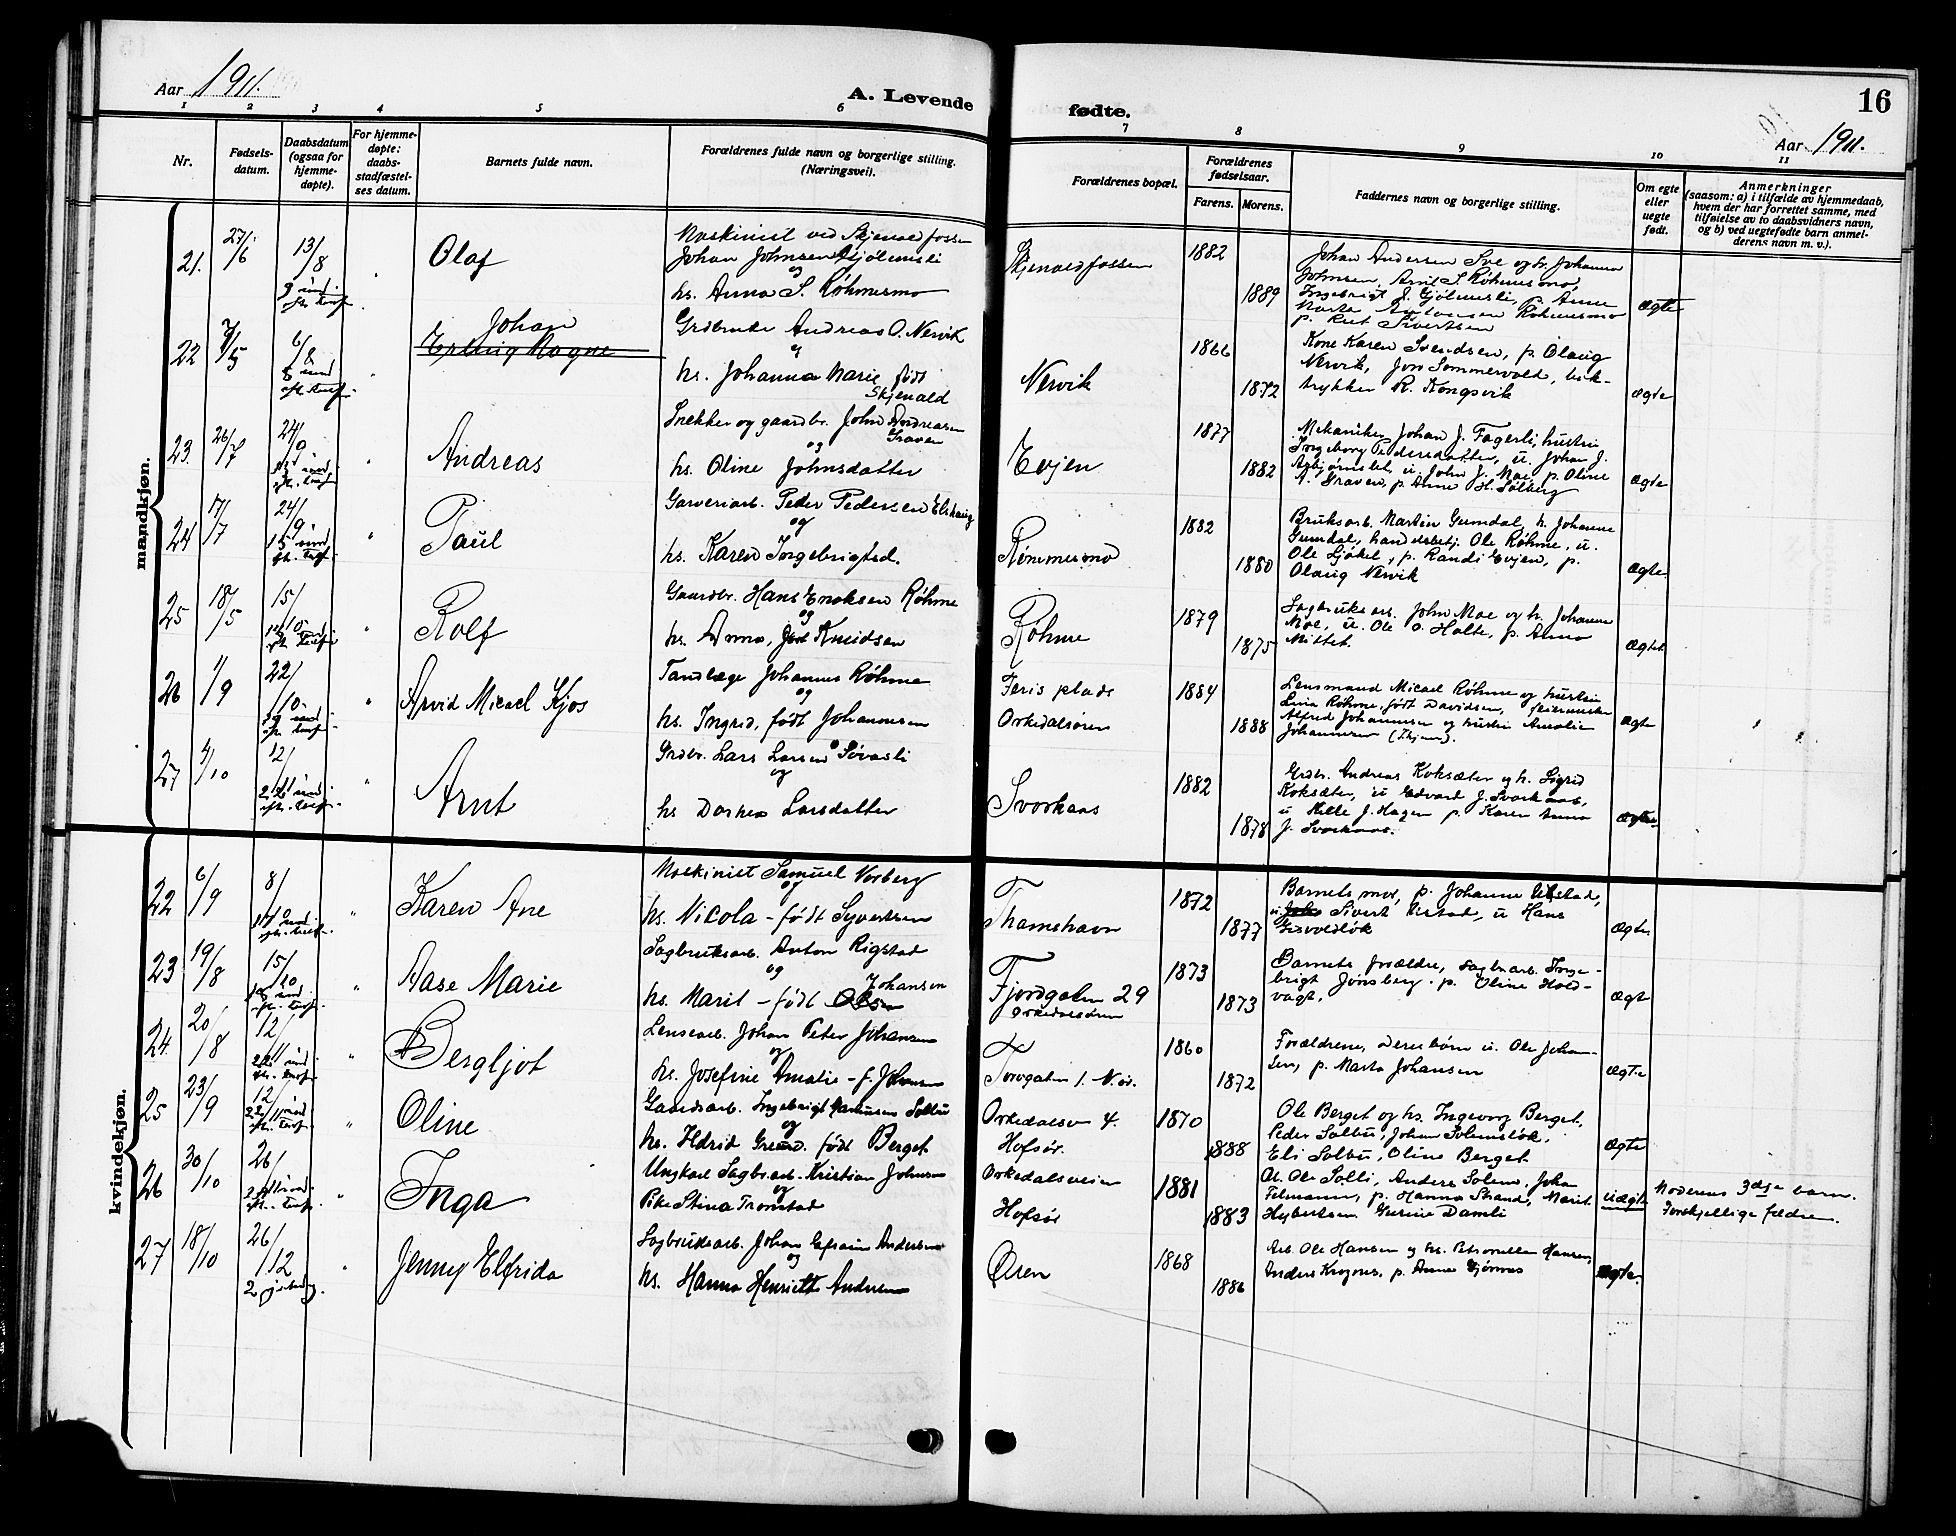 Aar 1911.
A. Levende
fødte.
16
Aar 1911.
1 2 3 4 5 6 7 8 9 10 11
Nr.
Fødsels-
datum.
Daabsdatum
(ogsaa for
hjemme-
døpte).
For hjemme-
døpte:
daabs-
stadfæstel-
ses datum.
Barnets fulde navn.
Forældrenes fulde navn og borgerlige stilling.
(Næringsvei).
Forældrenes bopæl.
Forældrenes
fødselsaar.
Farens. Morens.
Faddernes navn og borgerlige stilling.
Om egte
eller
uegte
født.
Anmerkninger
(saasom: a) i tilfælde av hjemmedaab,
hvem der har forrettet samme, med
tilføielse av to daabsvidners navn,
og b) ved uegtefødte barn anmel-
derens navn m. v.).
mandkjøn.
21. 27/6 13/8
Olaf
Maskinist ved Skjenaldfossen
Johan Johnsen Gjølmesli
og
hs. Anna S. Røhmesmo
Skjenaldfossen
1882
1889
Johan Andersen Sve og h. Johanna
Johnsen, Arnt S. Røhmesmo,
Ingebrigt J. Gjølmesli, p. Anne
Marta Røhmesmo
p. Sivertsen
ægte
22 7/5 6/8
Johan
Erling Magne
Grdbruke Andreas O. Nervik
og
hs. Johanna Marie født
Skjenald
Nervik
1866
1872
Kone Karen Svendsen, p. Olaug
Nervik, Jon Sommervold, bok-
trykker R. Kongsvik
ægte
23. 26/7 24/9
Andreas
Snekker og gaardbr. John Andreasen
Graven
og
hs. Oline Johnsdatter
Evjen
1877
1882
Mekaniker Johan J. Fagerli, hustru
Ingeborg Pedersdatter, u. Johan J.
Asbjørnslet, u. John J. Moe, p. Oline
A. Graven, p. Anne H. Solberg
ægte
24 17/7 24/9
Paul
Garveriarb. Peder Pedersen
og
hs. Karen Ingebrigtsd.
Rømmesmo
1882
1880
Bruksarb. Martin Gumdal, h. Johanne
Gumdal, handelsbetj. Ole Røhme, u.
Ole Ljøkel, p. Randi Evjen, p.
Olaug Nervik
Ægte.
25 18/5 15/10
Rolf
Gaardbr. Hans Enoksen Røhme
og
hs. Anna, født Knudsen
Røhme
1879
1875
Sagbruksarb. John Moe og h. Johanne
Moe, u. Ole O. Holte, p. Anna
Mittet.
Ægte
26 1/9 22/10
Arvid Micael Kjos
Tandlæge Johannes Røhme
og
hs. Ingrid, født Johannesen
Orkedalsøren
1884
1888
Lensmand Micael Røhme og hustru
Lina Røhme, født Davidsen,
Alfred Johannesen og hustru Amalie
Johannesen
Ægte
27 4/10 12/11
Arnt
Grdbr. Lars Larsen Søvasli
og
hs Dortea Larsdatter
Svorkaas
1882
1878
Grdbr. Andreas Koksæter og h. Sigrid
Koksæter, u Edvard J. Svorkaas,
u Kille J. Hagen p. Karen Anna
J. Svorkaas.
ægte
kvindekjøn.
22 6/9 8/
Karen Ane
Maskinist Samuel Vorberg
og
hs. Nicola - født Syvertsen
Thamshavn
1872
1877
Barnets mor, p. Johanne Uvstad,
u. Sivert Uvstad, u Hans
Grøvvedløk
Ægte.
23 19/8 15/10
Aase Marie
Sagbruksarb. Anton Rigstad
og
hs. Marit - født Olsen
Johansen
Fjordgaten 29
Orkedalsøren
1873
1873
Barnets forældre, sagbr.arb. Inge-
brigt Jønsberg. p. Oline Hold-
vagt.
Ægte
24. 20/8 12/11
Bergljot
Lensearb. Johan Peter Johansen
og
hs. Josefine Amalie - f. Johansen
Torvgaten 1.
1860
1872
Forældrene, deres børn u. Ole Johan-
sen, p. Marta Johansen
Ægte
25 23/9 12/11
Oline
Gaardsarb. Ingebrigt Solbu
og
hs. Ildrid født Berget
Orkedalsv 4.
Hofsør.
1870
1888
Ole Berget og hs. Ingeborg Berget,
Peder Solbu, Johan Solemsløk,
Eli Solbu, Oline Berget
Ægte
26 30/10 26/
Inga
Ungkarl Sagbr.arb. Kristian Johnsen
og
Pike Stina Tronstad
Orkedalsveien
Hofsør
1881
1883
Ab. Ole Solli, Anders Solem, Johan
Filmann, p. Hanna Strand, Marit
Hybertsen Gurine Damli
uægte
Moderens 3dje barn.
Forskjellige fædre.
27 18/10 26/12
Jenny Elfrida
Sagbruksarb. Johan Efraim Andersen
og
hs. Hanna Henriette Andersen
Øren
1868
1886
Arb. Ole Hansen og hs. Petronelle Hansen,
Anders Krognes, p. Anna Gjørnes
Ægte.